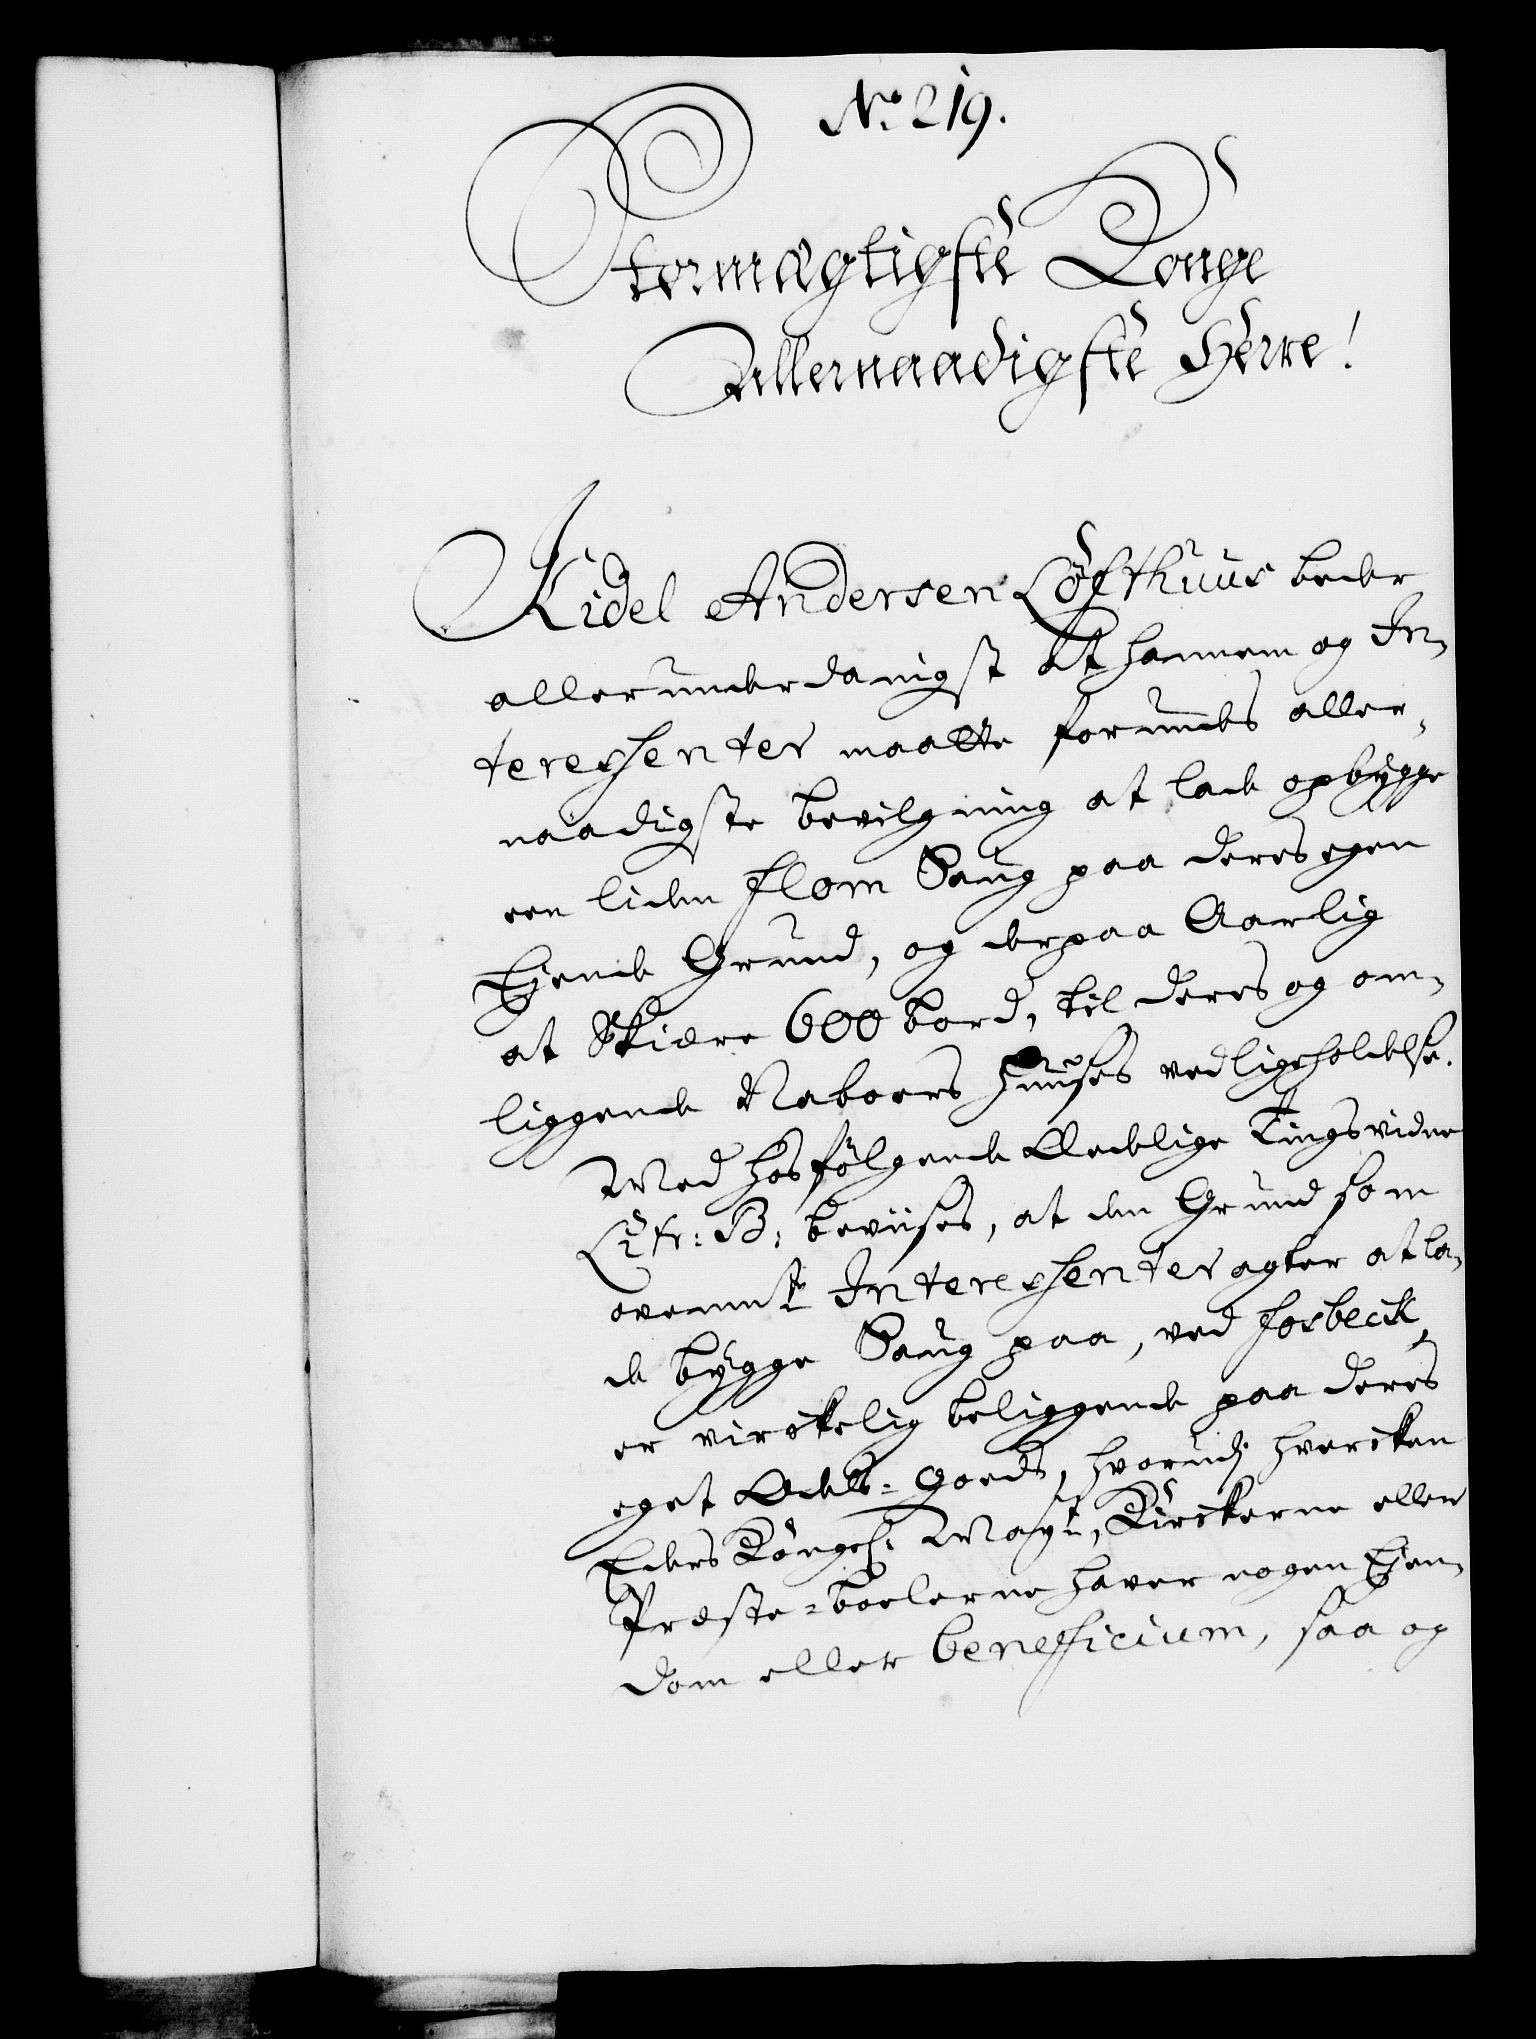 No 219.
Stormægtigste Konge
Allernaadigste Herre!
Kidel Andersen Löfthuus beder
allerunderdanigst at hannem og In-
teressenter maatte forundes aller-
naadigste bevilgning at lade opbygge
een liden flom Saug paa deres egen
Ejende Grund, og derpaa Aarlig
at Skiære 600 bord, til deres og om-
liggende Naboers Huuses vedligeholdelse.
Med hosfölgende Lovlige Tingsvidne
Litr: B: beviises, at den Grund som
ovennte Interessenter agter at la-
de bygge Saug paa, ved fosbeck,
er virckelig beliggende paa deres
eget Odels-Goeds, hvorudj hvercken
Eders Kongel: Mayt, Kirckerne eller
Præste-boelerne haver nogen Ejen-
dom eller beneficium, saa og